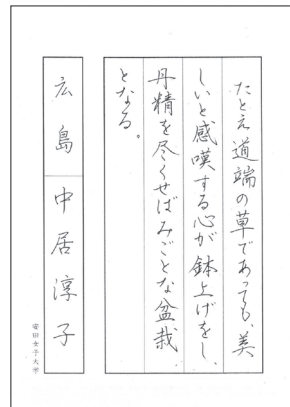 たとえ道端の草であっても、美
しいと感嘆する心が鉢上げをし、
丹精を尽くせばみごとな盆栽
となる。
広島 中居淳子
安田女子大学